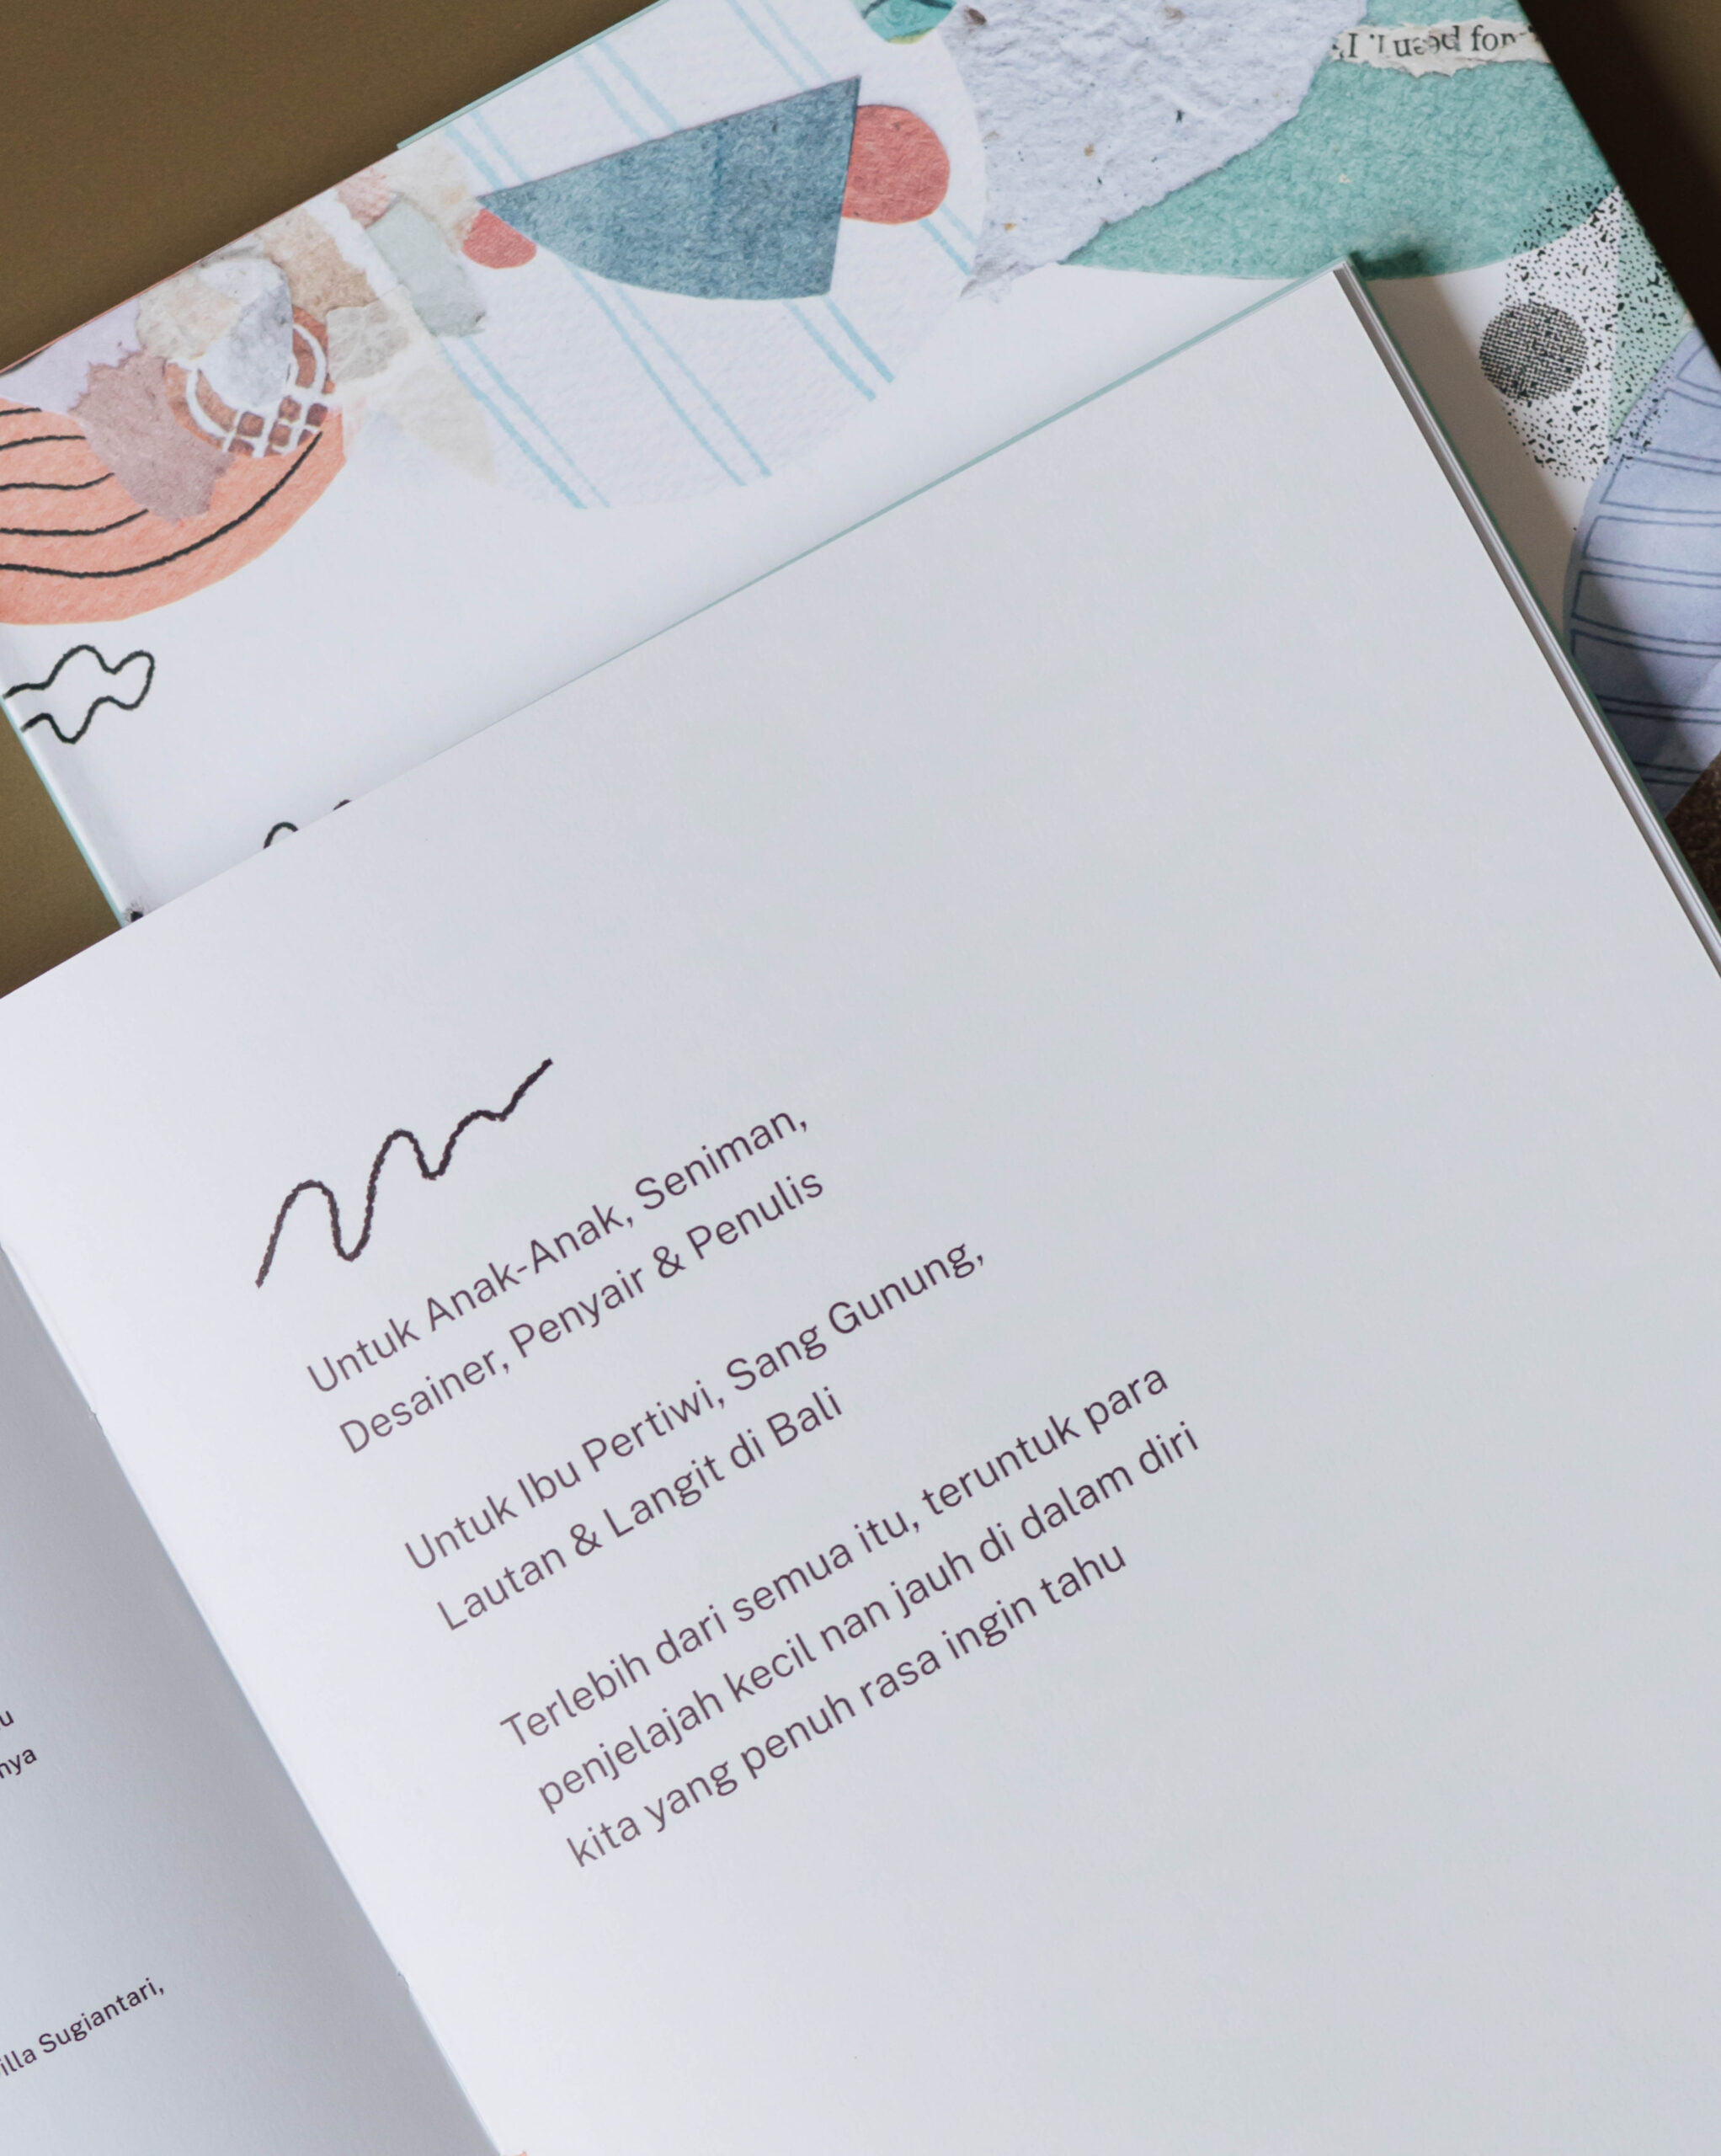 Untuk Anak-Anak, Seniman,
Desainer, Penyair & Penulis
Untuk Ibu Pertiwi, Sang Gunung,
Lautan & Langit di Bali
Terlebih dari semua itu, teruntuk para
penjelajah kecil nan jauh di dalam diri
kita yang penuh rasa ingin tahu
Sugiantari,